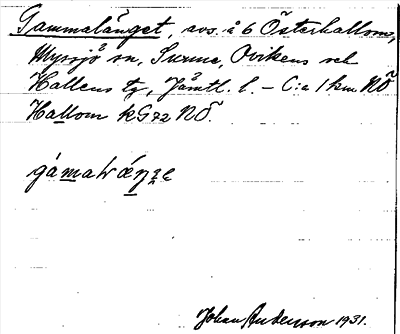 Gammalänget, avs. å 6 Österhallom,
Myssjö sn, Sunne, Ovikens och
Hallens tg, Jämtl. l. – C:a 1 km NÖ
Hallom kG72 NÖ.
Johan Anderson 1931.